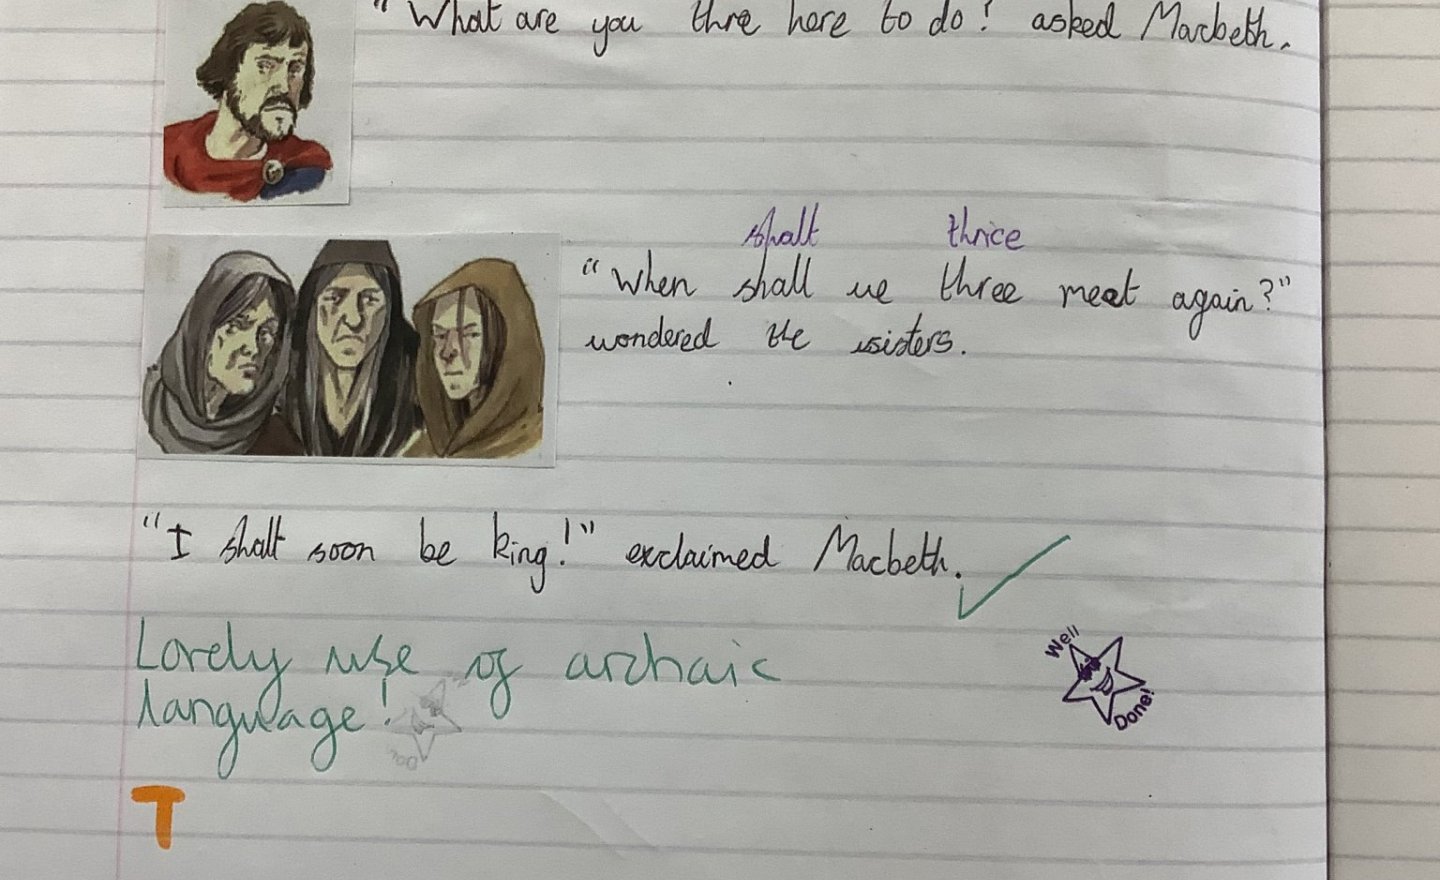 "What are you thre here to do! asked Macbeth.
shalt thrice
"When shall we three meet again?"
wondered the sisters.
"I shalt soon be king!" exclaimed Macbeth.
Lovely use of archaic
language!
Well
Done!
T